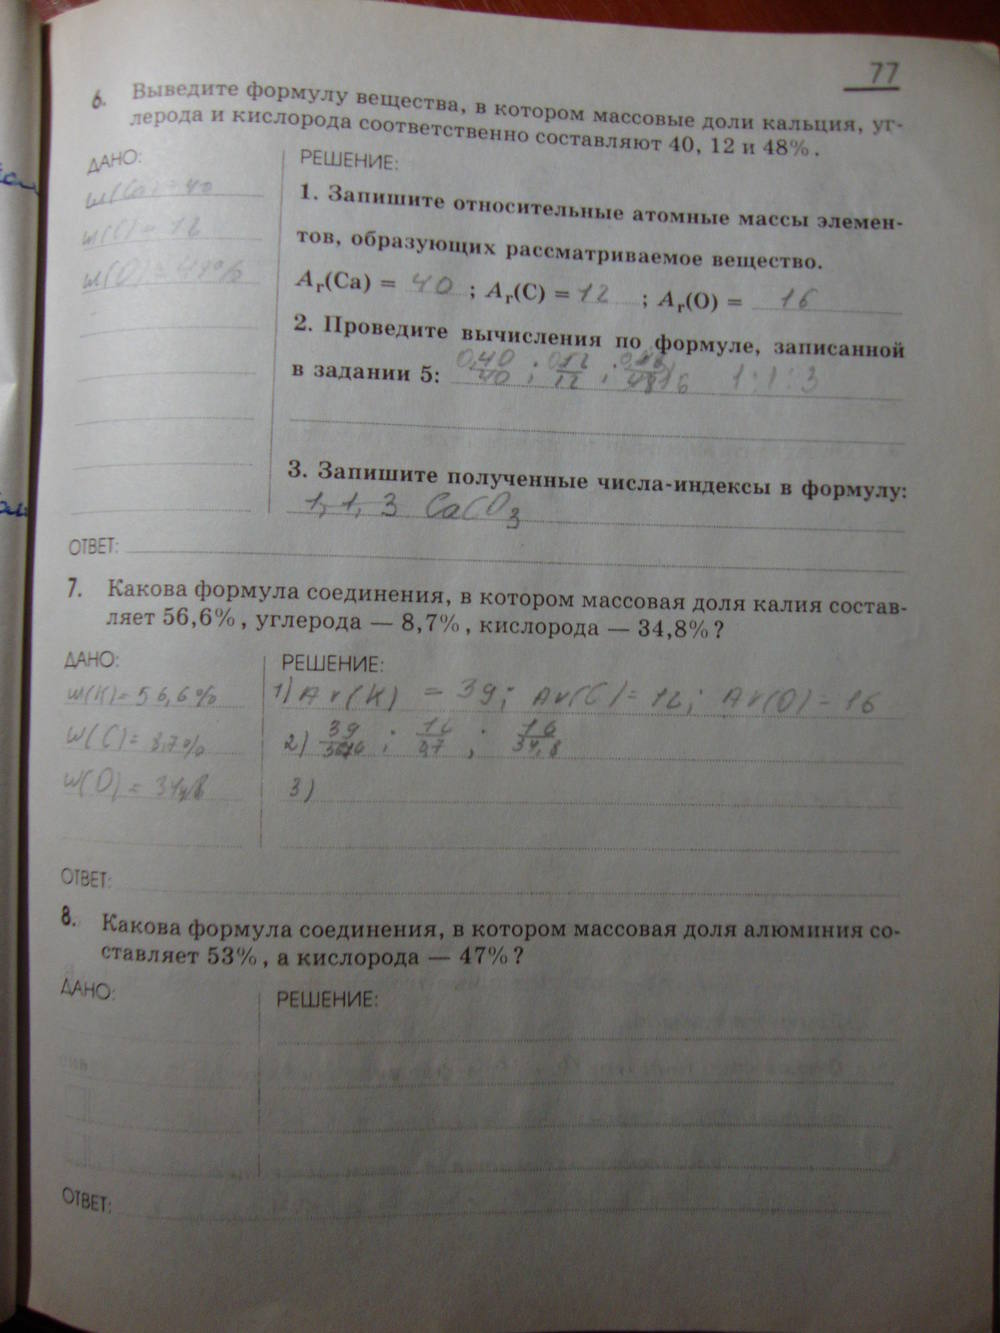 77
6. Выведите формулу вещества, в котором массовые доли кальция, уг-
лерода и кислорода соответственно составляют 40, 12 и 48%.
ДАНО:
РЕШЕНИЕ:
w(Ca) = 40
w(C) = 12
w(O) = 48%
1. Запишите относительные атомные массы элемен-
тов, образующих рассматриваемое вещество.
Ar(Ca) = 40 ; Ar(C) = 12 ; Ar(O) = 16
2. Проведите вычисления по формуле, записанной
в задании 5: 0,40/40 : 0,12/12 : 1:1:3
3. Запишите полученные числа-индексы в формулу:
1, 1, 3 CaCO3
ОТВЕТ:
7. Какова формула соединения, в котором массовая доля калия состав-
ляет 56,6%, углерода — 8,7%, кислорода — 34,8%?
ДАНО:
РЕШЕНИЕ:
w(K) = 56,6%
w(C) = 8,7%
w(O) = 34,8
1) Ar(K) = 39; Ar(C) = 12; Ar(O) = 16
2) 39/56,6 : 12/8,7 : 16/34,8
3)
ОТВЕТ:
8. Какова формула соединения, в котором массовая доля алюминия со-
ставляет 53%, а кислорода — 47%?
ДАНО:
РЕШЕНИЕ:
ОТВЕТ: